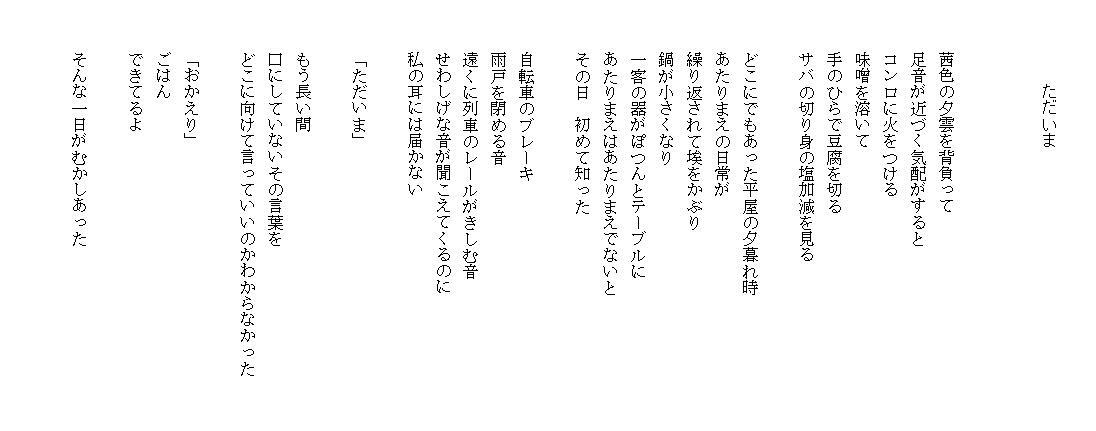 ただいま
茜色の夕雲を背負って
足音が近づく気配がすると
コンロに火をつける
味噌を溶いて
手のひらで豆腐を切る
サバの切り身の塩加減を見る
どこにでもあった平屋の夕暮れ時
あたりまえの日常が
繰り返されて埃をかぶり
鍋が小さくなり
一客の器がぽつんとテーブルに
あたりまえはあたりまえでないと
その日　初めて知った
自転車のブレーキ
雨戸を閉める音
遠くに列車のレールがきしむ音
せわしげな音が聞こえてくるのに
私の耳には届かない
「ただいま」
もう長い間
口にしていないその言葉を
どこに向けて言っていいのかわからなかった
「おかえり」
ごはん
できてるよ
そんな一日がむかしあった